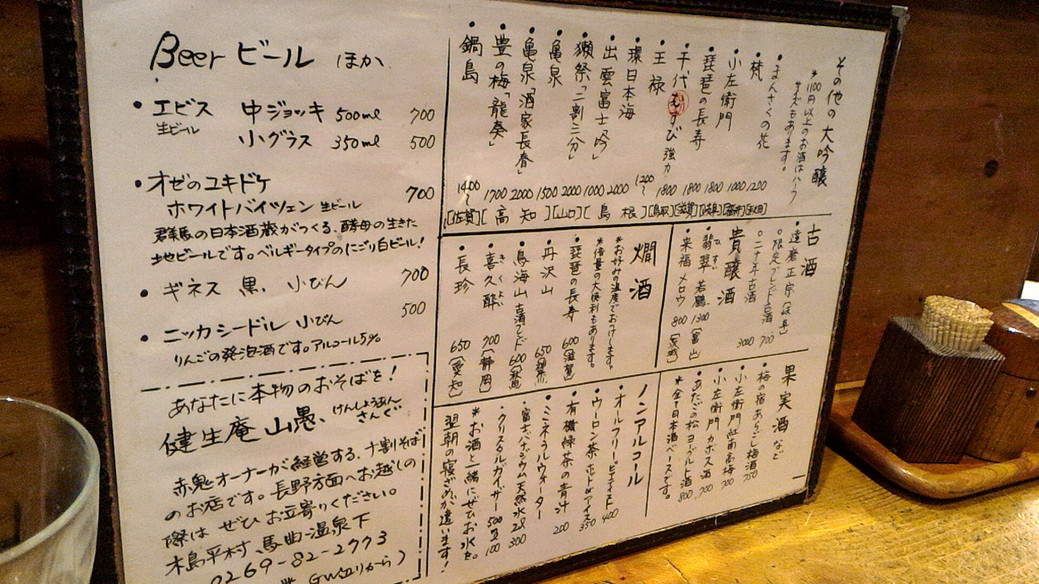 Beer ビール ほか
・エビス 中ジョッキ 500ml 700
生ビール 小グラス 350ml 500
・オゼのユキドケ
ホワイトバイツェン 生ビール 700
群馬の日本酒蔵がつくる、酵母の生きた
地ビールです。ベルギータイプのにごり白ビール!
・ギネス 黒、小びん 700
・ニッカシードル 小びん 500
りんごの発泡酒です。アルコール5%
あなたに本物のおそばを!
健生庵 山愚、けんしょうあん さんぐ
赤鬼オーナーが経営する、十割そば
のお店です。長野方面へお越しの
際は ぜひ お立寄りください。
木島平村、馬曲温泉下
0269-82-2773
GW辺りから)
その他の大吟醸
*1100円以上のお酒はハーフ
サイズもあります。
・まんさくの花 1200
・梵 1000
・小左衛門 1800
・琵琶の長寿 1800
・千代むすび 強力 1800
・王禄 1200〜
・環日本海 2000
・出雲富士「吟」 1000
・獺祭「二割三分」 2000
・亀泉 1500
・亀泉「酒家長春」 2000
・豊の梅「龍奏」 1700
・鍋島 1400〜
[佐賀] [高知] [山口] [島根] [鳥取] [滋賀] [岐阜] [福井] [秋田]
古酒
・達磨正宗
○限定ブレンド古酒 700
○二十年古酒 3000
貴醸酒
・翡翠 若鶴 1300 [富山]
・来福 メロウ 800
燗酒
*お好みの温度でおつけします。
*倍量の大徳利もあります。
・琵琶の長寿 600 [滋賀]
・丹沢山 650
・鳥海山 600
・喜久酔 きくよい 700 [静岡]
・長珍 650 [愛知]
果実酒 など
・梅の宿あらごし梅酒 750
・小左衛門紅南高梅 700
・小左衛門カボス酒 700
・あたごの松 ヨーグルト酒 800
*全て日本酒ベースです。
ノンアルコール
・オールフリー 400
・ウーロン茶 350
・有機緑茶の青汁 200
・ミネラルウォーター
・富士バナジウム天然水 2ℓ 300
・クリスタルガイザー 500ml 100
*お酒と一緒にぜひお水を。
翌朝の寝ざめが違います!